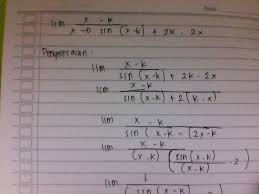 lim x - k
x→0 sin (x-k) + 2k - 2x
Penyelesaian :
lim x - k
sin (x-k) + 2k - 2x
lim x - k
sin (x-k) + 2(k-x)
lim x - k
sin (x-k - (2x-k
lim (x-k)
(x-k) (sin (x-k) - 2)
(x-k)
lim 1
sin (x-k)